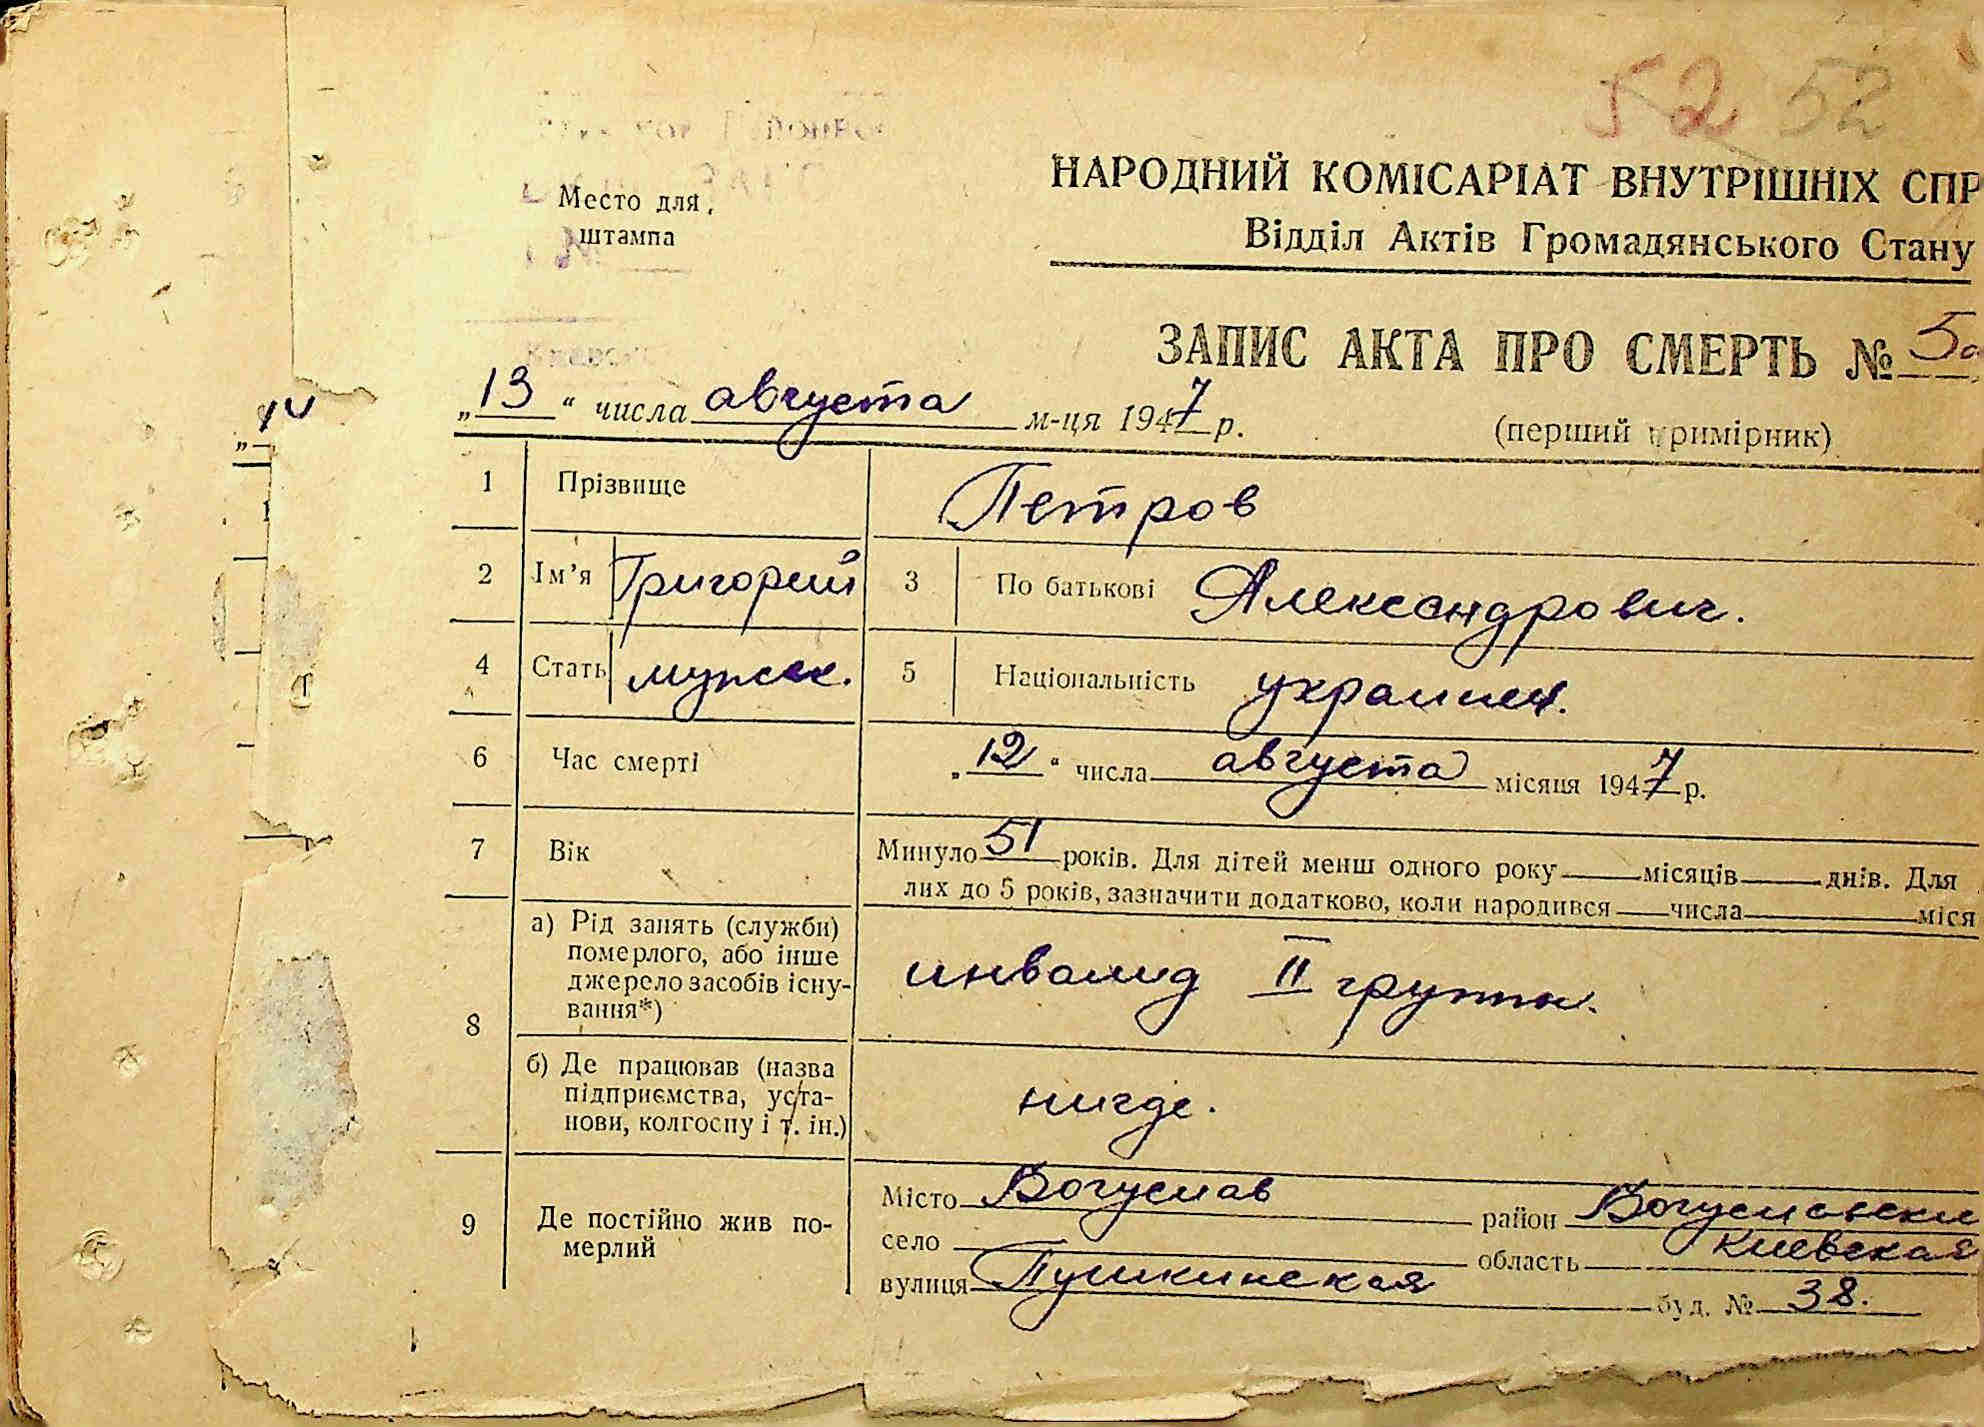 52 52
Место для
штампа
НАРОДНИЙ КОМІСАРІАТ ВНУТРІШНІХ СПР
Відділ Актів Громадянського Стану
ЗАПИС АКТА ПРО СМЕРТЬ № 5
„13“ числа августа м-ця 1947 р.
(перший примірник)
1 Прізвище Петров
2 Ім’я Григорий 3 По батькові Александрович.
4 Стать мужск. 5 Національність украинец.
6 Час смерті „12“ числа августа місяця 1947 р.
7 Вік Минуло 51 років. Для дітей менш одного року місяців днів. Для
лих до 5 років, зазначити додатково, коли народився числа міся
8 а) Рід занять (служби)
померлого, або інше
джерело засобів існу-
вання*)
инвалид II группы.
б) Де працював (назва
підприємства, уста-
нови, колгоспу і т. ін.)
нигде.
9 Де постійно жив по-
мерлий
Місто Богуслав район Богуславски
село область Киевская
вулиця Пушкинская буд. № 38.